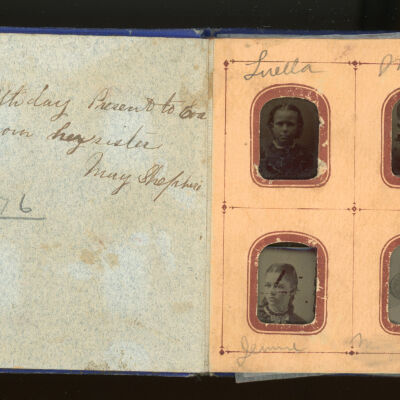 thday Present to Eva
her sister
May Shephi
76
Luella
Jennie